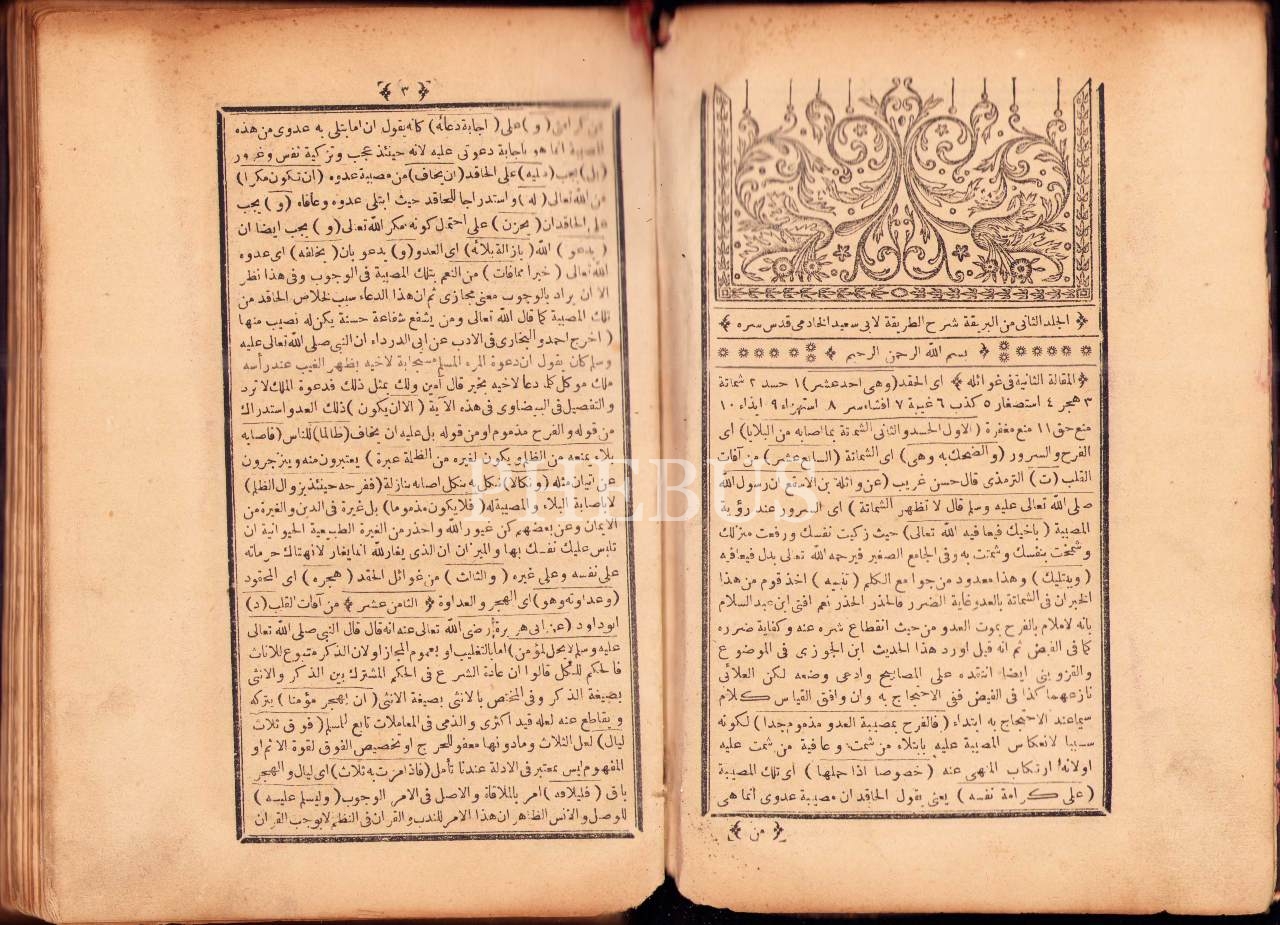 الجلد الثانى من البريقة شرح الطريقة لابى سعيد الخادمى قدس سره
بسم الله الرحمن الرحيم
المقالة الثانية فى غوائله اى الحقد (وهى احد عشر) ١ حسد ٢ شماتة
٣ هجر ٤ استصغار ٥ كذب ٦ غيبة ٧ افشاء سر ٨ استهزاء ٩ ايذاء ١٠
منع حق ١١ منع مغفرة (الاول الحسد والثانى الشماتة بما اصابه من البلايا) اى
الفرح والسرور (والضحك به وهى) اى الشماتة (السابع عشر) من آفات
القلب (ت) الترمذى قال حسن غريب (عن واثلة بن الاسقع ان رسول الله
صلى الله تعالى عليه وسلم قال لا تظهر الشماتة) اى السرور عند رؤية
المصيبة (باخيك فيعافيه الله تعالى) حيث زكيت نفسك ورفعت منزلك
وشمخت بنفسك وشمت به وفى الجامع الصغير فيرحمه الله تعالى بدل فيعافيه
(ويبتليك) وهذا معدود من جوامع الكلم (تنبيه) اخذ قوم من هذا
الخبر ان فى الشماتة بالعدو غاية الضرر فالحذر الحذر نعم افتى ابن عبد السلام
بانه لاملام بالفرح بموت العدو من حيث انقطاع شره عنه وكفاية ضرره
كما فى الفيض ثم انه قيل اورد هذا الحديث ابن الجوزى فى الموضوع
والقزوينى ايضا انتقده على المصابيح وادعى وضعه لكن العلائى
نازعهما كذا فى الفيض ففى الاحتجاج به وان وافق القياس كلام
سيما عند الاحتجاج به ابتداء (فالفرح بمصيبة العدو مذموم جدا) لكونه
سببا لانعكاس المصيبة عليه بابتلاء من شمت وعافية من شمت عليه
اولانه ارتكاب المنهى عنه (خصوصا اذا حملها) اى تلك المصيبة
(على كرامة نفسه) يعنى يقول الحاقد ان مصيبة عدوى انما هى
من
٣
من كرامتى (و) على (اجابة دعائه) كانه يقول ان ما ابتلى به عدوى من هذه
المصيبة انما هو باجابة دعوتى عليه لانه حينئذ عجب وتزكية نفس وغرور
(بل) يجب (عليه) على الحاقد (ان يخاف) من مصيبة عدوه (ان تكون مكرا)
من الله تعالى (له) واستدراجا للحاقد حيث ابتلى عدوه وعافاه (و) يجب
على الحاقد ان (يحزن) على احتمال كونه مكر الله تعالى (و) يجب ايضا ان
(يدعو) الله (بازالة بلائه) اى العدو (و) يدعو بان (يخلفه) اى عدوه
الله تعالى (خيرا مما فات) من النعم بتلك المصيبة فى الوجوب وفى هذا نظر
الا ان يراد بالوجوب معنى مجازى ثم ان هذا الدعاء سبب لخلاص الحاقد من
تلك المصيبة كما قال الله تعالى ومن يشفع شفاعة حسنة يكن له نصيب منها
(اخرج احمد والبخارى فى الادب عن ابى الدرداء ان النبى صلى الله تعالى عليه
وسلم كان يقول ان دعوة المرء المسلم مستجابة لاخيه بظهر الغيب عند رأسه
ملك موكل كلما دعا لاخيه بخير قال آمين ولك بمثل ذلك فدعوة الملك لا ترد
والتفصيل فى البيضاوى فى هذه الآية (الا ان يكون) ذلك العدو استدراك
من قوله والفرح مذموم او من قوله بل عليه ان يخاف (ظالما) للناس (فاصابه
بلاء يمنعه من الظلم ويكون لغيره من الظلمة عبرة) يعتبرون منه وينزجرون
عن اتيان مثله (ونكالا) نكل به ينكل اصابه بنازلة (ففرحه حينئذ بزوال الظلم)
لا باصابة البلاء والمصيبة له (فلا يكون مذموما) بل غيرة فى الدين والغيرة من
الايمان وعن بعضهم كن غيور الله واحذر من الغيرة الطبيعية الحيوانية ان
تلبس عليك نفسك بها والميزان ان الذى يغار لله انما يغار لانتهاك حرماته
على نفسه وعلى غيره (والثالث) من غوائل الحقد (هجره) اى المحقود
(وعداوته وهو) اى الهجر والعداوة الثامن عشر من آفات القلب (د)
ابوداود (عن ابى هريرة) رضى الله تعالى عنه انه قال قال النبى صلى الله تعالى
عليه وسلم لا يحل لمؤمن) اما بالتغليب او بعموم المجاز اولان الذكر متبوع للاناث
فالحكم للكل قالوا ان عادة الشرع فى الحكم المشترك بين الذكر والانثى
بصيغة الذكر وفى المختص بالانثى بصيغة الانثى (ان يهجر مؤمنا) يتركه
ويقاطع عنه لعله قيد اكثرى والذمى فى المعاملات تابع لمسلم (فوق ثلاث
ليال) لعل الثلاث وما دونها معفو للحرج او تخصيص الفوق لقوة الاثم او
المفهوم ليس بمعتبر فى الادلة عندنا تأمل (فاذا مرت به ثلاث) اى ليال والهجر
باق (فليلاقه) امر بالملاقاة والاصل فى الامر الوجوب (وليسلم عليه)
للوصل والانس الظاهر ان هذا الامر للندب والقران فى النظم لا يوجب القران
PHEBUS